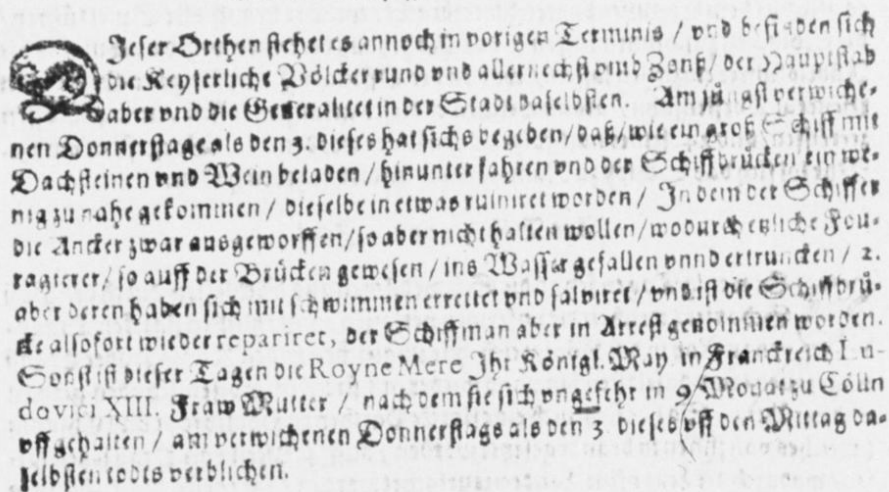 Dieser Orthen stehet es annoch in vorigen Terminis / vnd befinden sich
die Keyserliche Völcker rund vnd allernechst vmb Zonß / der Hauptstab
aber vnd die Generalitet in der Stadt daselbsten. Am jüngst verwiche-
nen Donnerstage als den 3. dieses hat sichs begeben / daß / wie ein groß Schiff mit
Dachsteinen vnd Wein beladen / hinunter fahren vnd der Schiffbrücken ein we-
nig zu nahe gekommen / dieselbe in etwas ruiniret worden / In dem der Schiffer
die Ancker zwar ausgeworffen / so aber nicht halten wollen / wodurch etzliche Fou-
ragierer / so auff der Brücken gewesen / ins Wasser gefallen vnnd ertruncken / 2.
aber deren haben sich mit schwimmen errettet vnd salviret / vnd ist die Schiffbrü-
cke alsofort wieder repariret, der Schiffman aber in Arrest genommen worden.
Sonst ist dieser Tagen die Royne Mere Ihr Königl. May in Franckreich Lu-
dovici XIII. Fraw Mutter / nach dem sie sich vngefehr in 9 Monat zu Cölln
vffgehalten / am verwichenen Donnerstags als den 3 dieses vff den Mittag da-
selbsten todes verblichen.